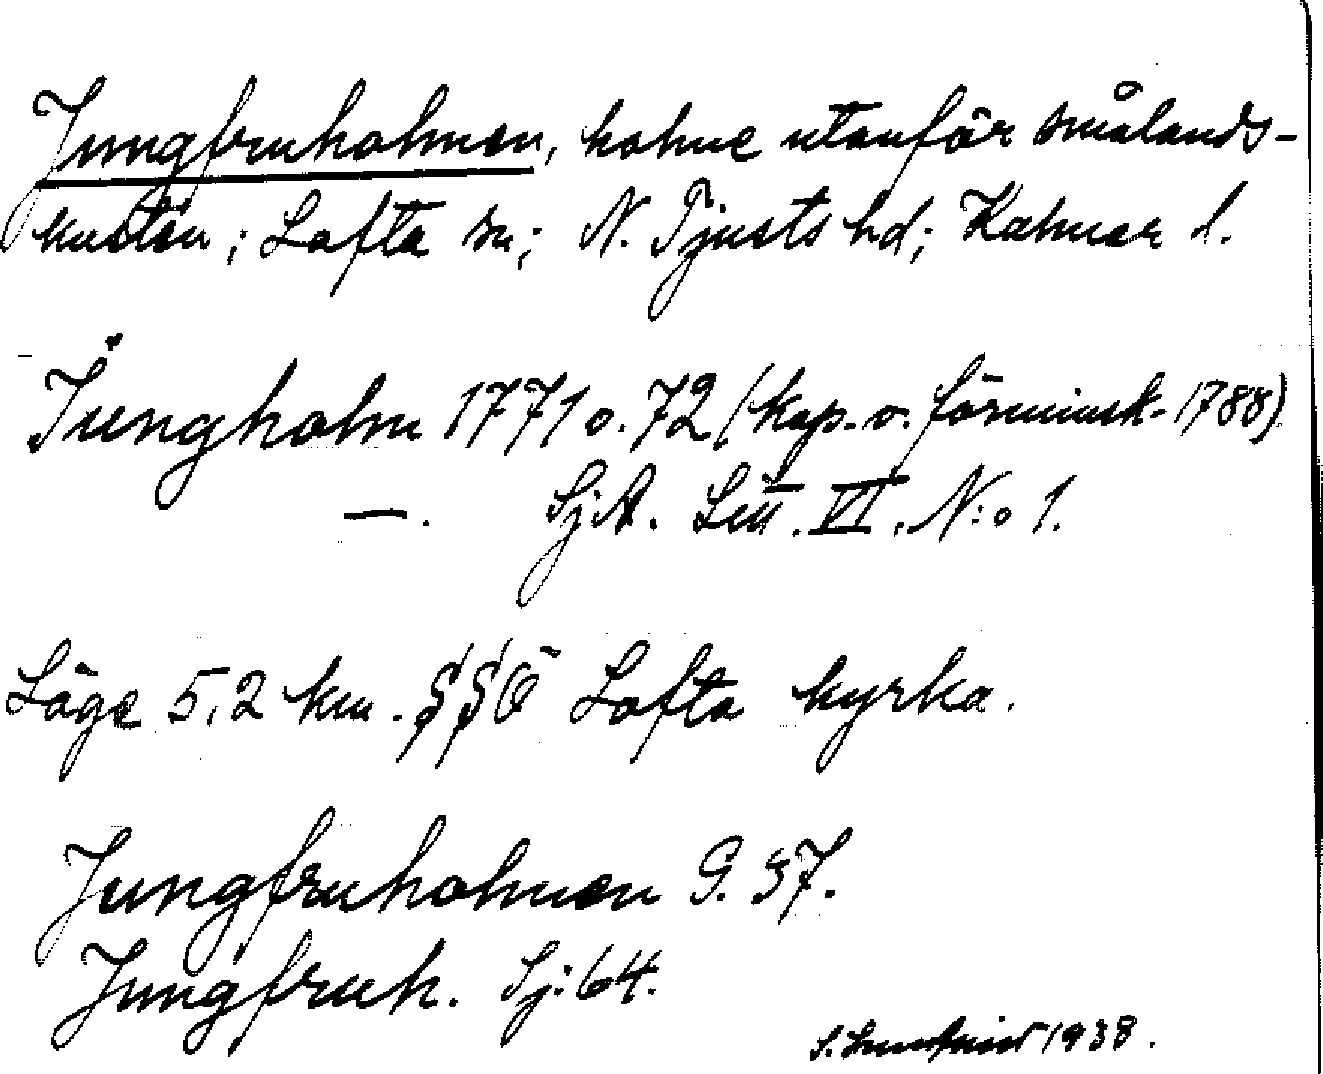 Jungfruholmen, holme utanför smålands-
kusten; Lofta sn; N. Tjusts hd; Kalmar l.
Jungholm 1771 o. 72 (kop. o. förminsk. 1788)
—. SjA. Litt. VI. N:o 1.
Läge 5,2 km. SSÖ Lofta kyrka.
Jungfruholmen G. 37.
Jungfruh. Sj: 64.
1938.